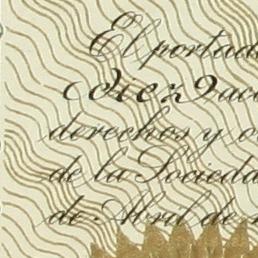 El portad
diez Acc
derechos y o
de la Sociedad
de Abril de